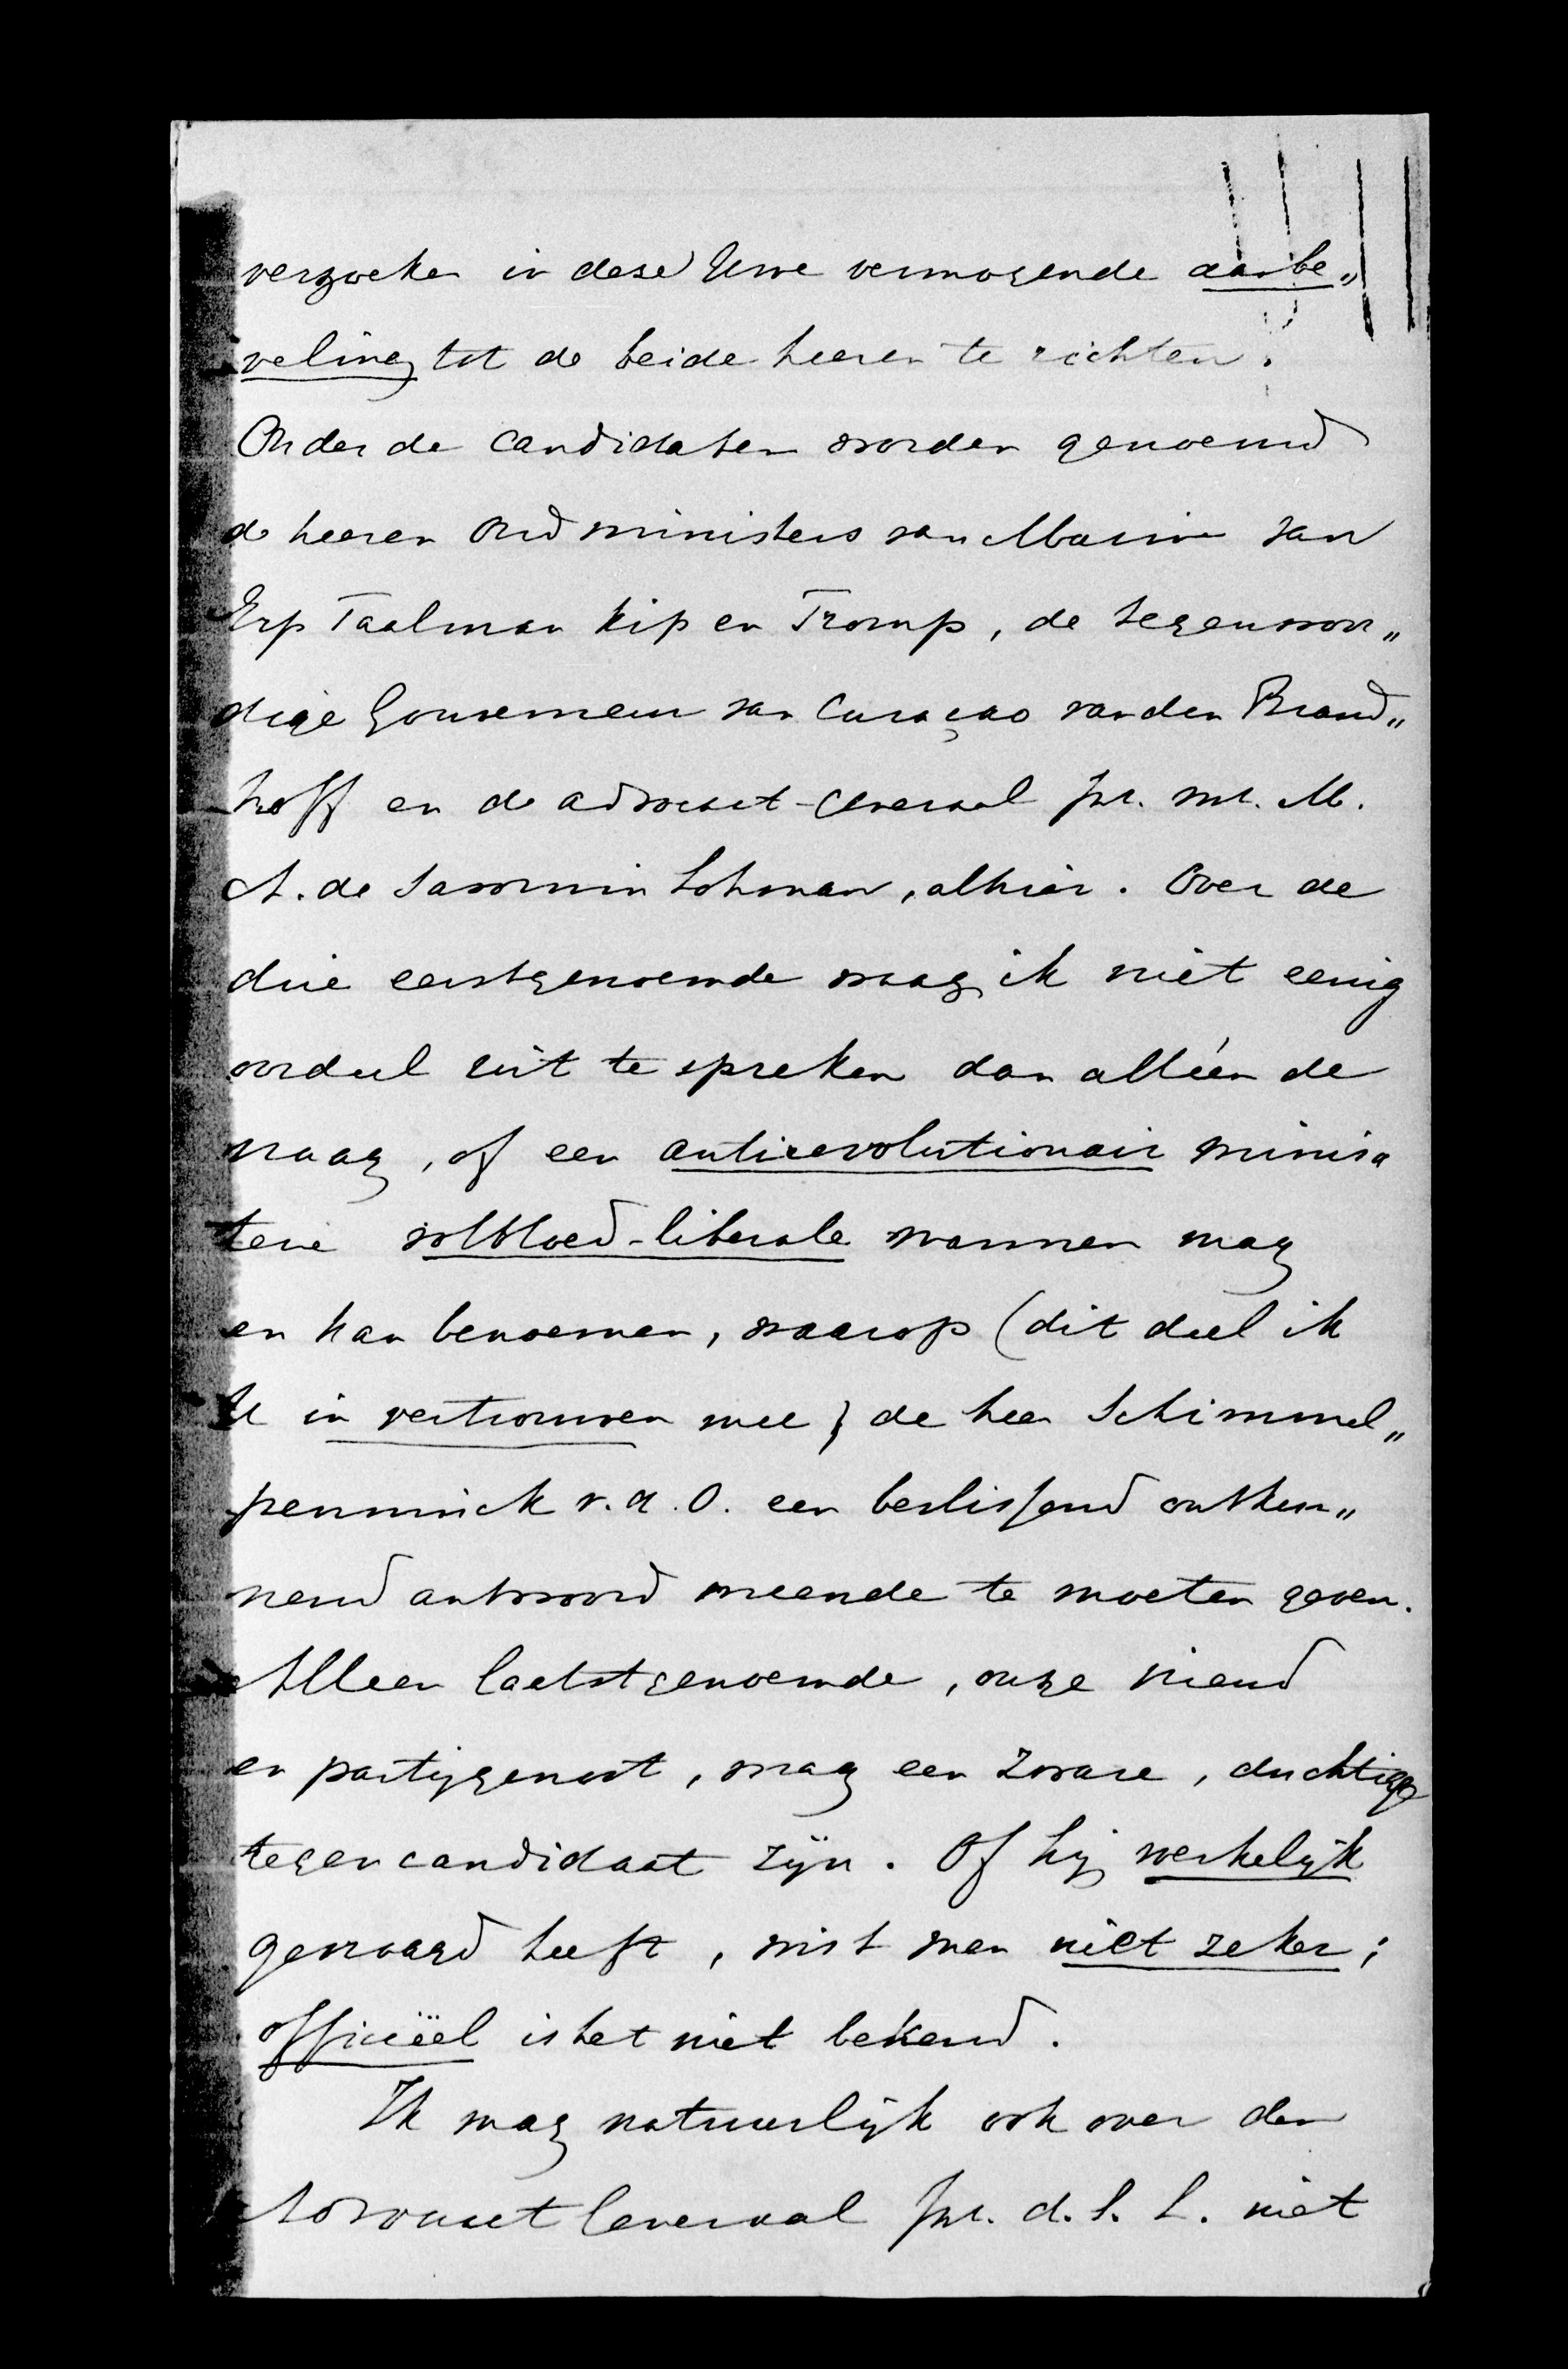 verzoeken in deze Uwe vermogende aanbe„
veling tot de beide heeren te richten.
Onder de candidaten worden genoemd
de heeren oud ministers van Marine van
Erp Taalman Kip en Tromp, de tegenwoor„
dige Gouverneur van Curaçao van den Brand„
hoff en de advocaat-Generaal jhr. mr. M.
A. de Savornin Lohman, alhier. Over de
drie eerstgenoemde waag ik niet eenig
oordeel uit te spreken dan alléén de
vraag, of een antirevolutionair minis„
terie volbloed-liberale mannen mag
en kan benoemen, waarop (dit deel ik
U in vertrouwen mee) de heer Schimmel„
penninck v. d. O. een beslissend ontken„
nend antwoord meende te moeten geven.
Alleen laatstgenoemde, onze vriend
en partijgenoot, mag een zware, duchtige
tegencandidaat zijn. Of hij werkelijk
gevraagd heeft, wist men niet zeker;
officiëel is het niet bekend.
Ik mag natuurlijk ook over den
Advocaat Generaal jhr. d. S. L. niet